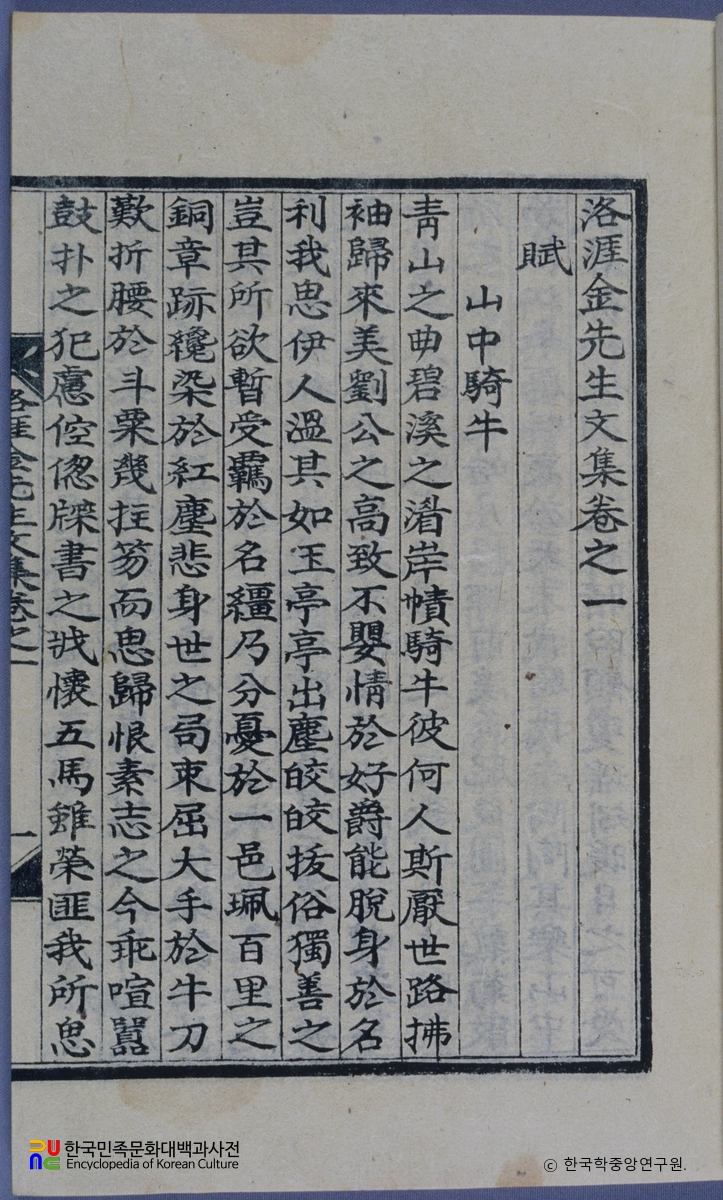 洛涯金先生文集卷之一
賦
山中騎牛
青山之曲碧溪之湝岸幘騎牛彼何人斯厭世路拂
袖歸來美劉公之高致不嬰情於好爵能脫身於名
利我思伊人溫其如玉亭亭出塵皎皎拔俗獨善之
豈其所欲暫受羈於名繮乃分憂於一邑珮百里之
銅章跡纔染於紅塵悲身世之局束屈大手於牛刀
歎折腰於斗粟幾拄笏而思歸恨素志之今乖喧囂
鼓扑之犯慮倥偬牒書之戕懷五馬雖榮匪我所思
洛涯金先生文集卷之一
一
한국민족문화대백과사전
Encyclopedia of Korean Culture
ⓒ 한국학중앙연구원.